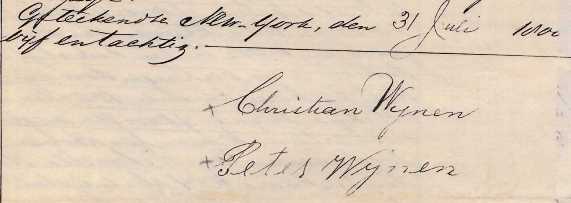 Geteekend te New-York, den 31 Juli
vyf en tachtig.
Christian Wynen
Peter Wynen